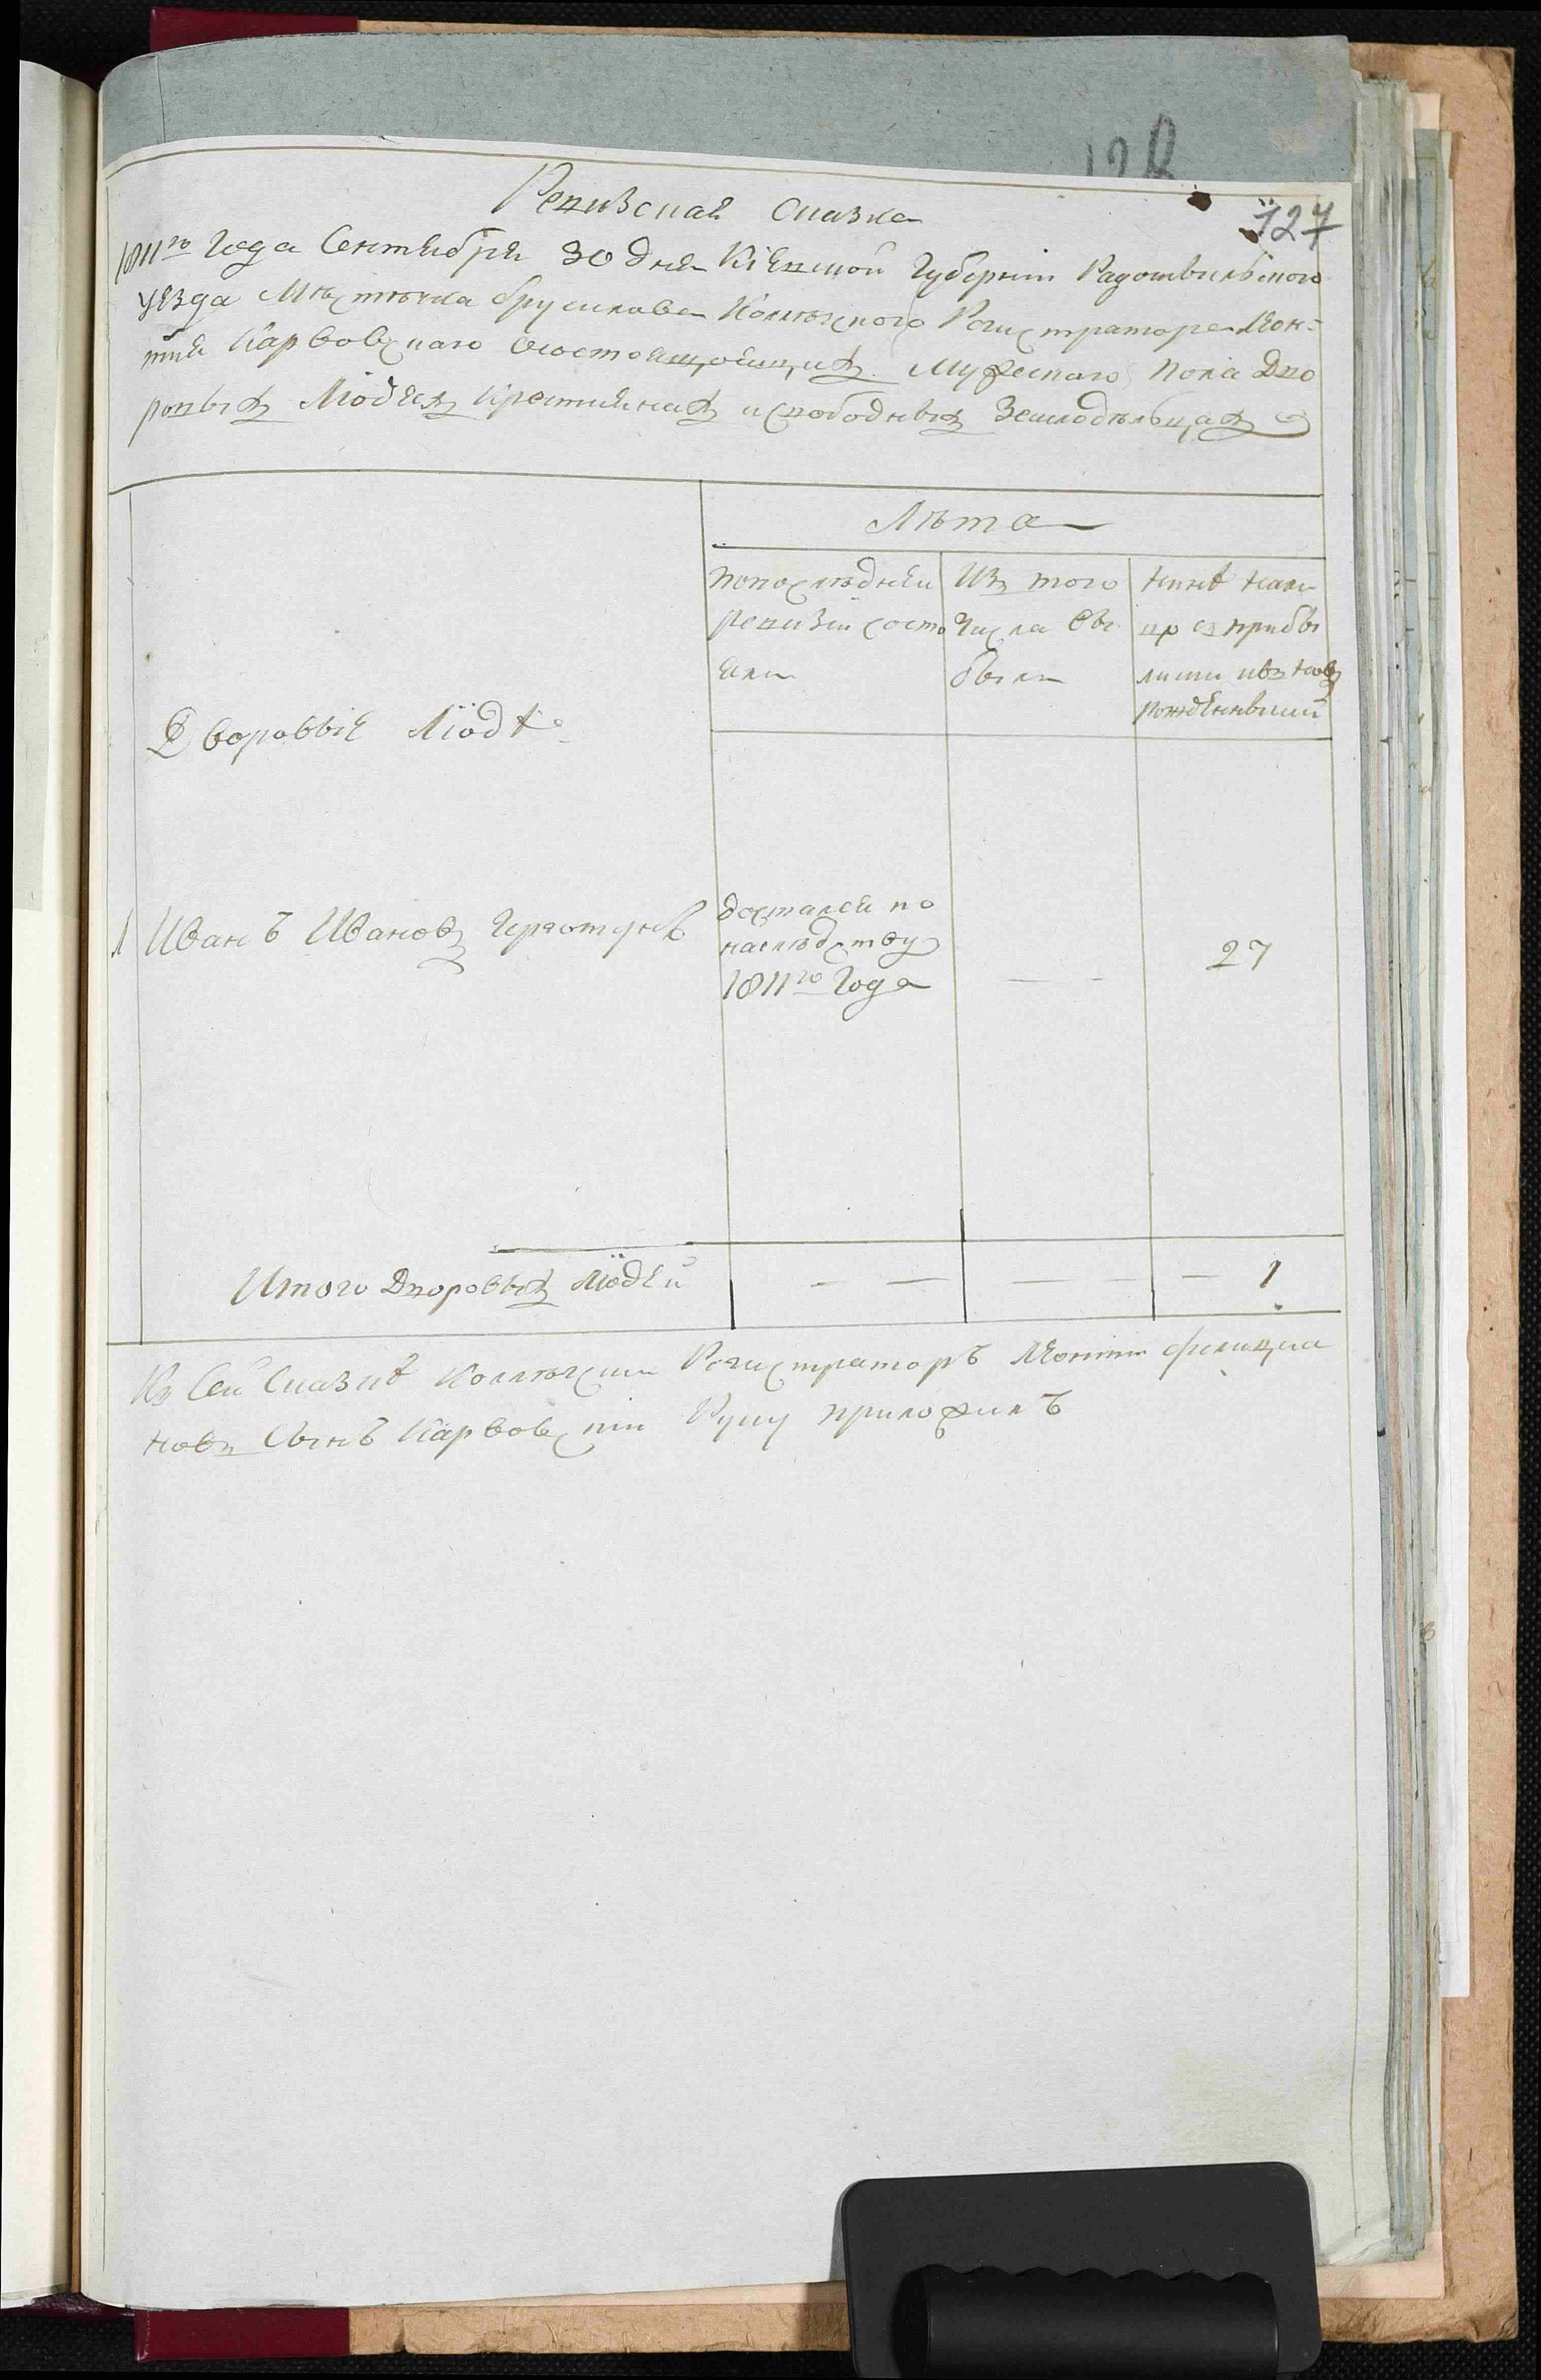 128
127
Ревизская сказка
1811го Года Сентября 30 дня Кіевской Губерніи Радомысльского
уезда Мѣстѣчка брусилова Коллѣжского Регистратора Леон-
тия Карвовского осостоящоящихъ Мужескаго пола Дво
ровыхъ Людехъ крестиянахъ и свободныхъ Земледѣльцахъ
Лѣта
Дворовыіе Люди
попослѣдней
ревизіи состо
яли
Изъ того
Числа вы
были
нынѣ нали
цо съ прибы
лыми изъ новъ
рожденными
1 Иванъ Ивановъ
достался по
наслѣдству
1811го Года
— -
27
Итого Дворовыхъ Людей
— —
— —
— 1
Къ Сей Сказкѣ коллѣжски Регистраторъ Леонти фелициа
новъ Сынъ Карвовскіи Руку приложилъ